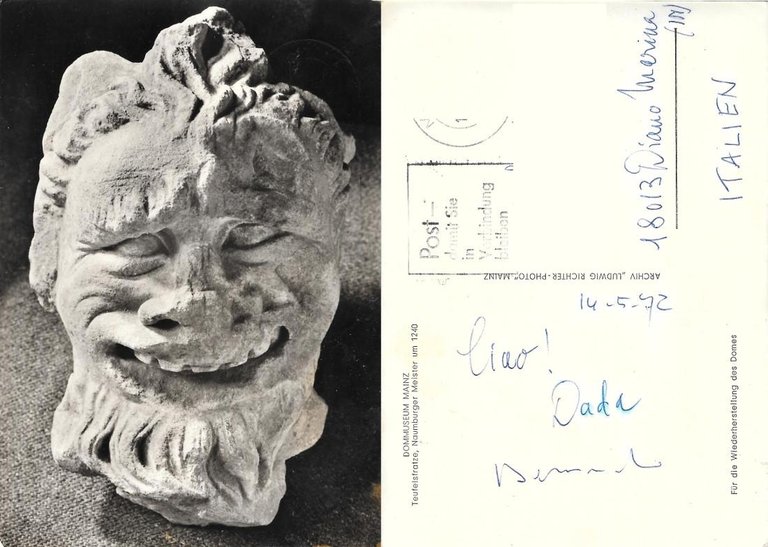 DOMMUSEUM MAINZ
Teufelsfratze, Naumburger Meister um 1240
Post —
damit Sie
in
Verbindung
bleiben
ARCHIV „LUDWIG RICHTER-PHOTO" MAINZ
14-5-72
Ciao!
Dada
18013 Diano Marina
(IM)
ITALIEN
Für die Wiederherstellung des Domes